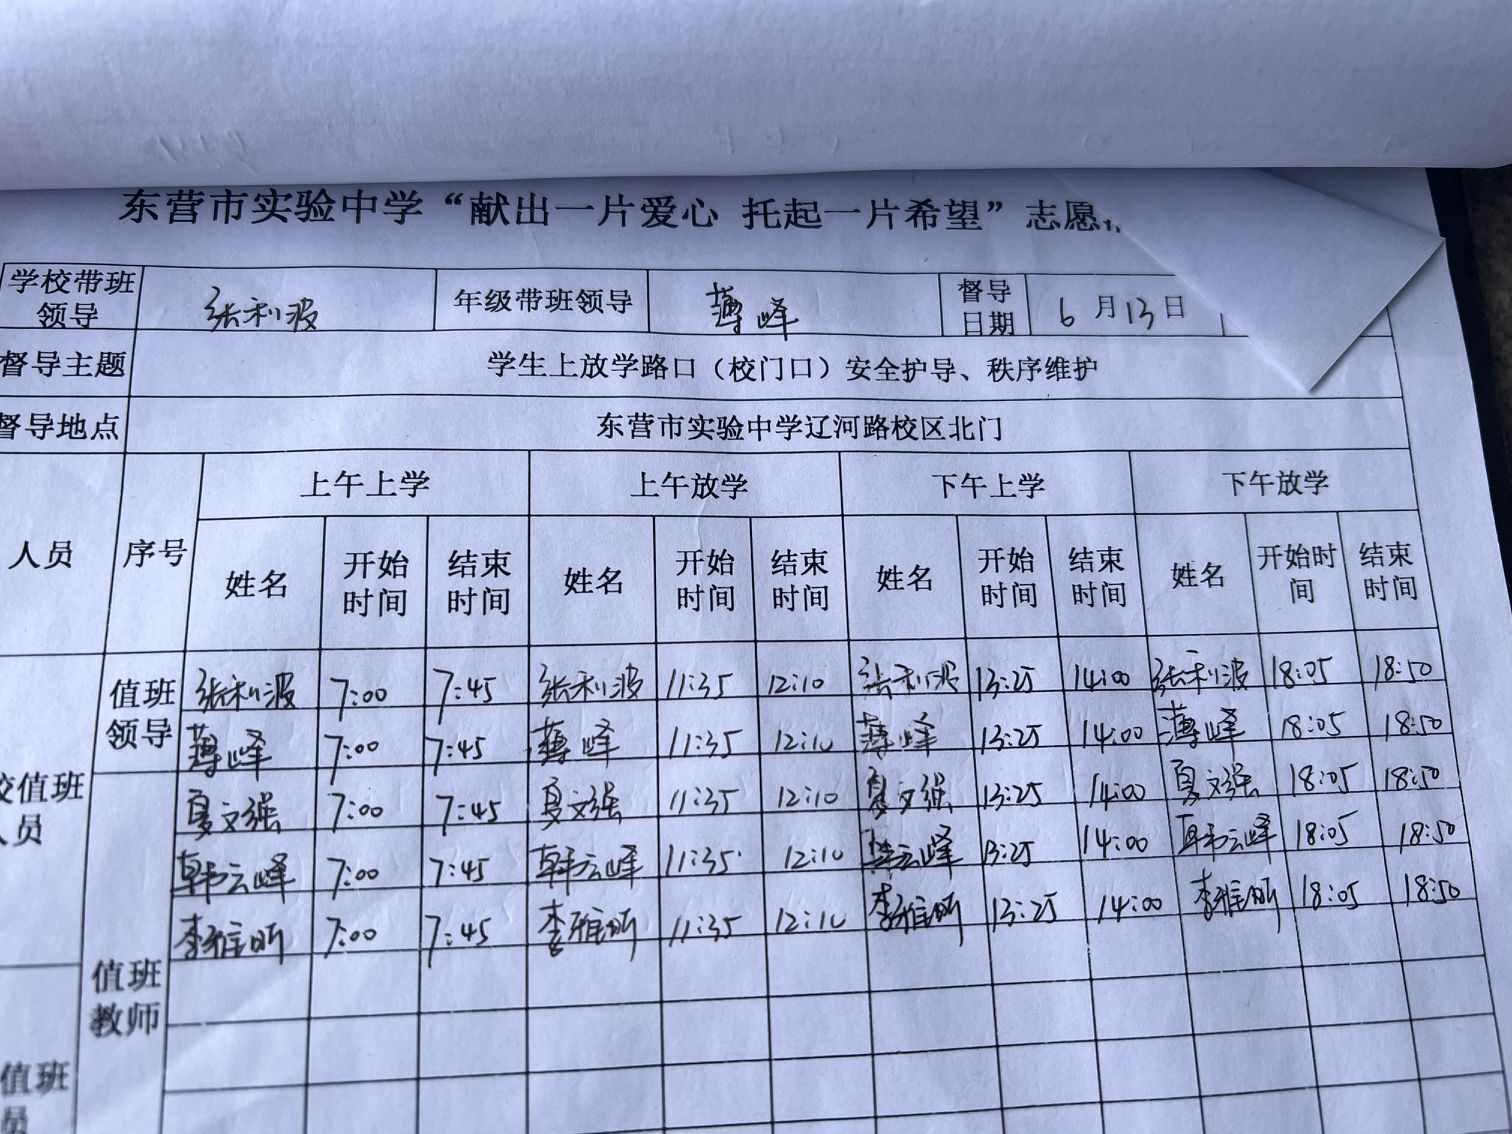 东营市实验中学“献出一片爱心 托起一片希望”志愿
学校带班领导 张利波 年级带班领导 薄峰 督导日期 6月13日
督导主题 学生上放学路口（校门口）安全护导、秩序维护
督导地点 东营市实验中学辽河路校区北门
人员 序号 上午上学 上午放学 下午上学 下午放学
姓名 开始时间 结束时间 姓名 开始时间 结束时间 姓名 开始时间 结束时间 姓名 开始时间 结束时间
校值班人员 值班领导 张利波 7:00 7:45 张利波 11:35 12:10 张利波 13:25 14:00 张利波 18:05 18:50
薄峰 7:00 7:45 薄峰 11:35 12:10 薄峰 13:25 14:00 薄峰 18:05 18:50
值班教师 夏文强 7:00 7:45 夏文强 11:35 12:10 夏文强 13:25 14:00 夏文强 18:05 18:50
韩云峰 7:00 7:45 韩云峰 11:35 12:10 韩云峰 13:25 14:00 韩云峰 18:05 18:50
李雅昕 7:00 7:45 李雅昕 11:35 12:10 李雅昕 13:25 14:00 李雅昕 18:05 18:50
值班员